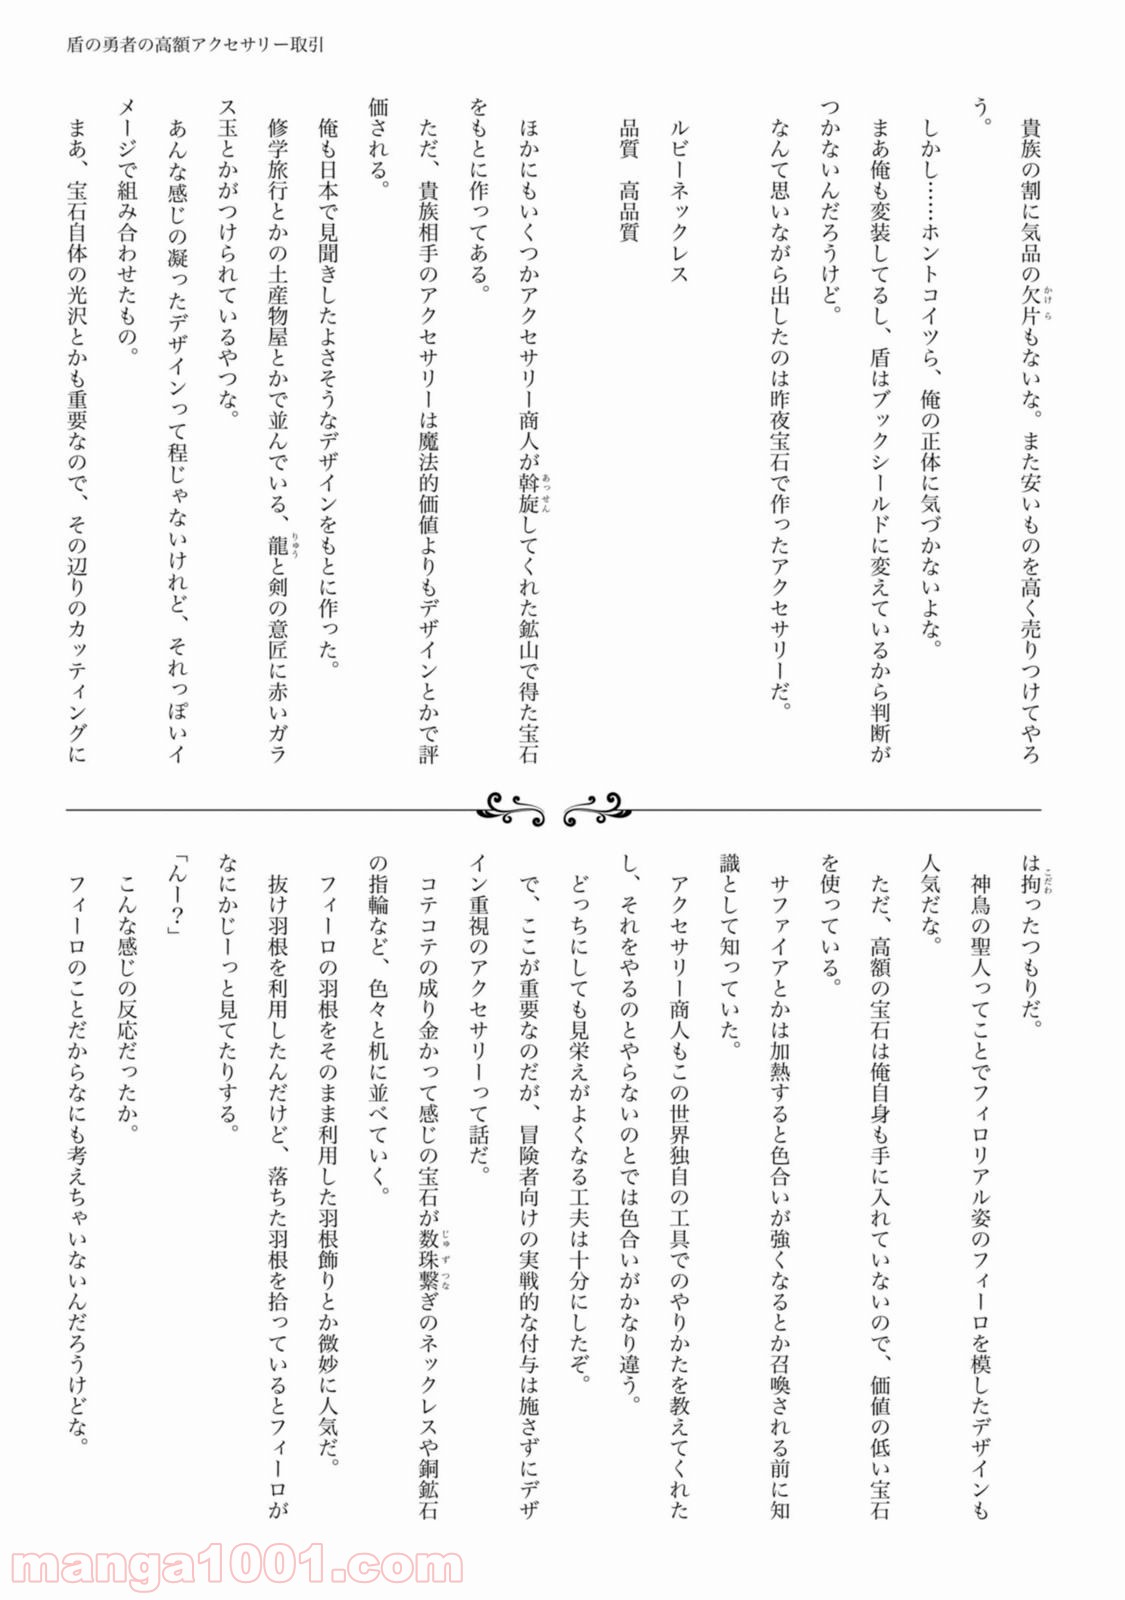 盾の勇者の高額アクセサリー取引
貴族の割に気品の欠片もないな。また安いものを高く売りつけてやろ
う。
しかし……ホントコイツら、俺の正体に気づかないよな。
まあ俺も変装してるし、盾はブックシールドに変えているから判断が
つかないんだろうけど。
なんて思いながら出したのは昨夜宝石で作ったアクセサリーだ。
ルビーネックレス
品質　高品質
ほかにもいくつかアクセサリー商人が斡旋してくれた鉱山で得た宝石
をもとに作ってある。
ただ、貴族相手のアクセサリーは魔法的価値よりもデザインとかで評
価される。
俺も日本で見聞きしたよさそうなデザインをもとに作った。
修学旅行とかの土産物屋とかで並んでいる、龍と剣の意匠に赤いガラ
ス玉とかがつけられているやつな。
あんな感じの凝ったデザインって程じゃないけれど、それっぽいイ
メージで組み合わせたもの。
まあ、宝石自体の光沢とかも重要なので、その辺りのカッティングに
は拘ったつもりだ。
神鳥の聖人ってことでフィロリアル姿のフィーロを模したデザインも
人気だな。
ただ、高額の宝石は俺自身も手に入れていないので、価値の低い宝石
を使っている。
サファイアとかは加熱すると色合いが強くなるとか召喚される前に知
識として知っていた。
アクセサリー商人もこの世界独自の工具でのやりかたを教えてくれた
し、それをやるのとやらないのとでは色合いがかなり違う。
どっちにしても見栄えがよくなる工夫は十分にしたぞ。
で、ここが重要なのだが、冒険者向けの実戦的な付与は施さずにデザ
イン重視のアクセサリーって話だ。
コテコテの成り金かって感じの宝石が数珠繋ぎのネックレスや銅鉱石
の指輪など、色々と机に並べていく。
フィーロの羽根をそのまま利用した羽根飾りとか微妙に人気だ。
抜け羽根を利用したんだけど、落ちた羽根を拾っているとフィーロが
なにかじーっと見てたりする。
「んー？」
こんな感じの反応だったか。
フィーロのことだからなにも考えちゃいないんだろうけどな。
manga1001.com